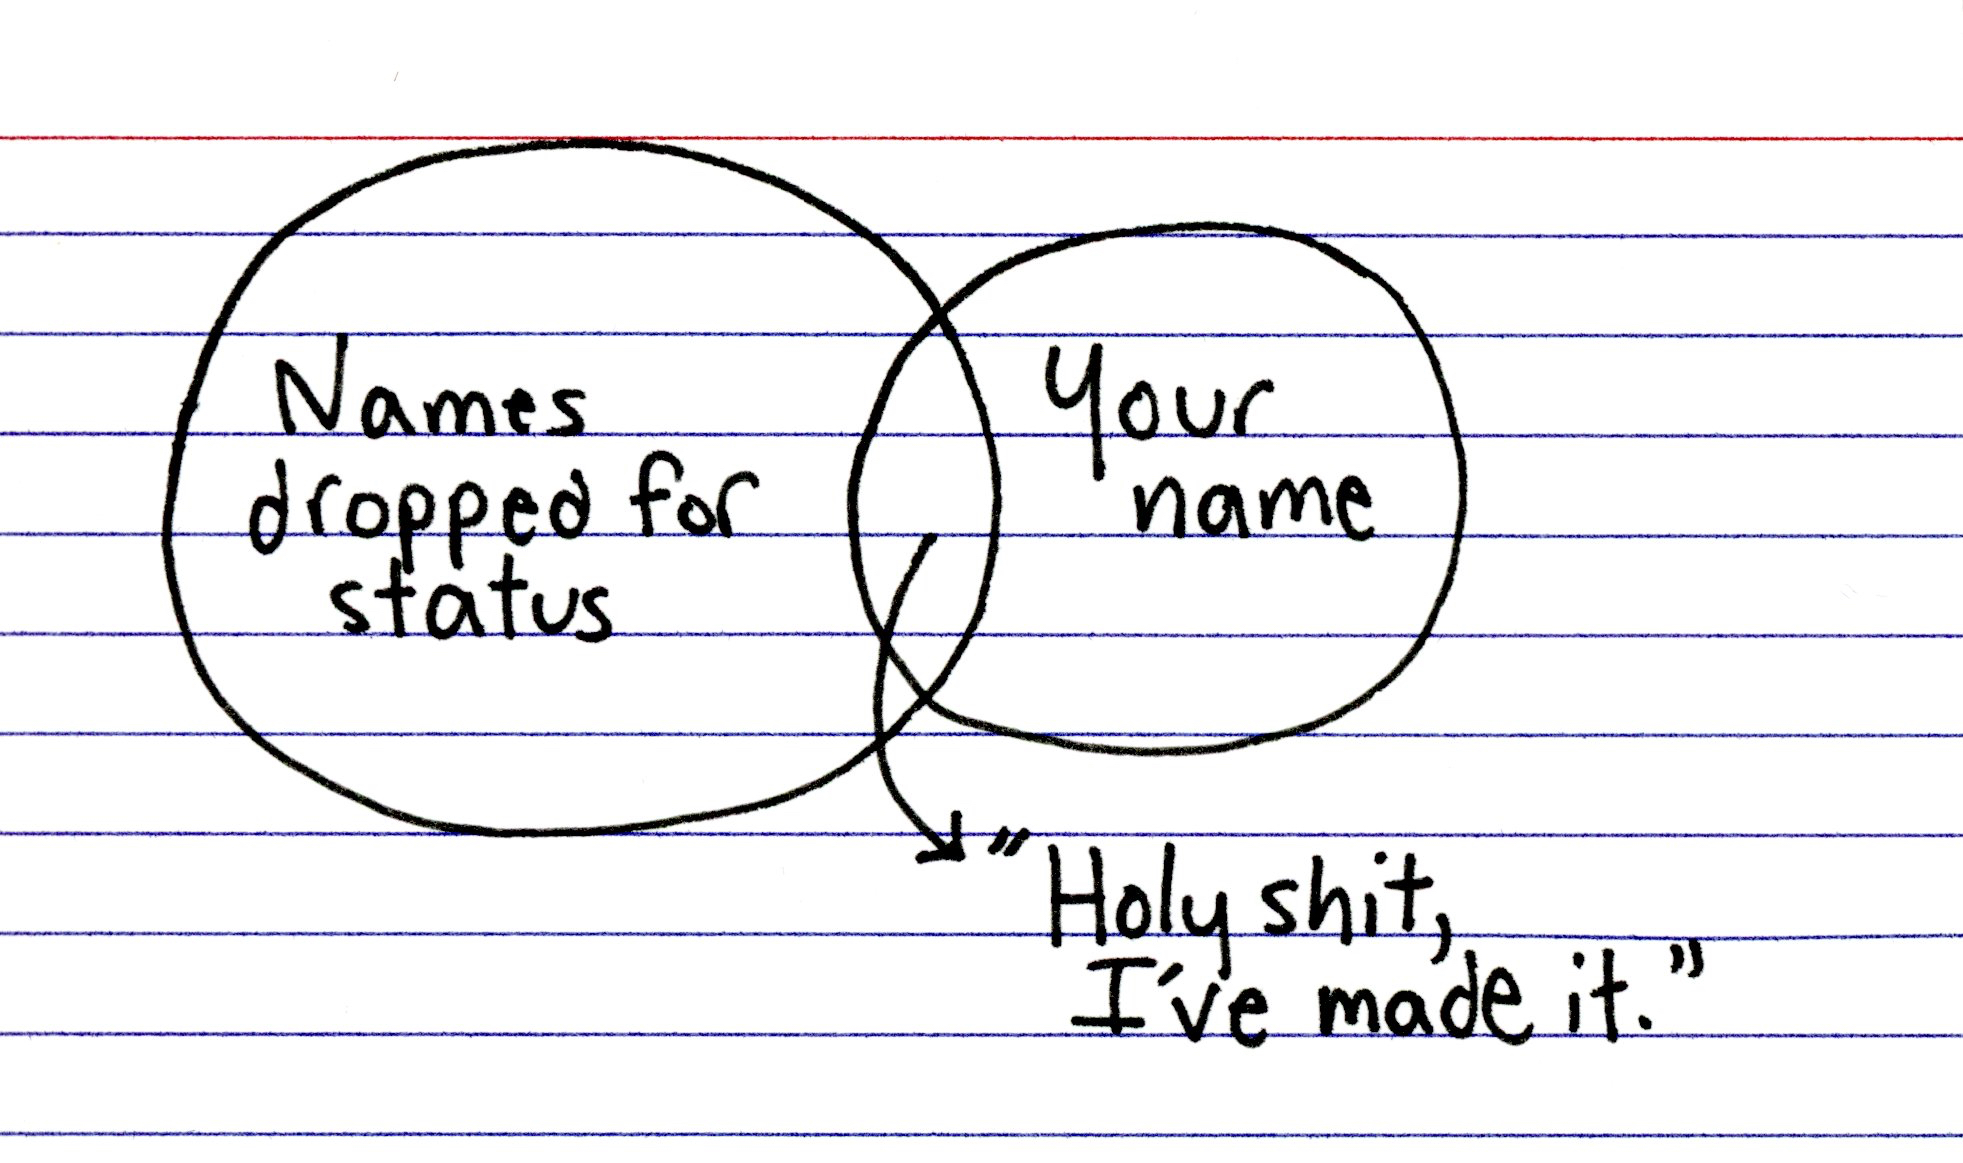 Names
dropped for
status
Your
name
"Holy shit,
I've made it."